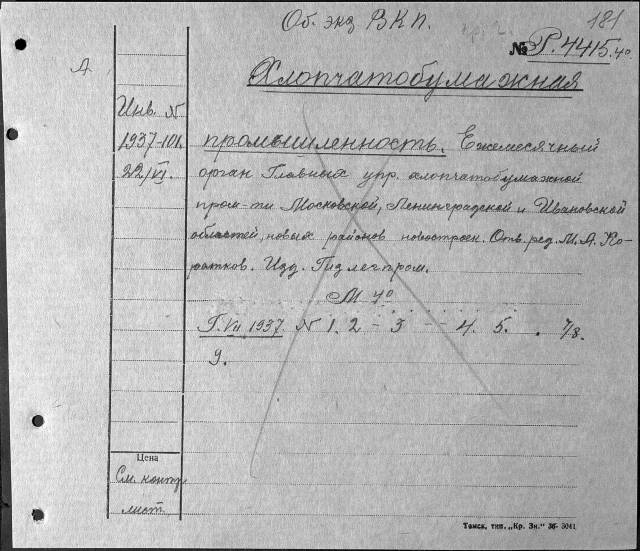 Об. экз ВКП.
181
№ Р.4415.4°
А
Хлопчатобумажная
Инв. N
1937-101.
22/VI.
промышленность. Ежемесячный
орган Главных упр. хлопчатобумажной
пром-ти Московской, Ленинградской и Ивановской
областей, новых районов новостроек. Отв. ред. М. А. Ко-
ротков. Изд. Гизлегпром.
М 4°
Г. VII 1937 N 1. 2 - 3 - - 4. 5. . 7/8.
9.
Цена
См. контр
лист.
Томск, тип. „Кр. Зн." 36- 3041